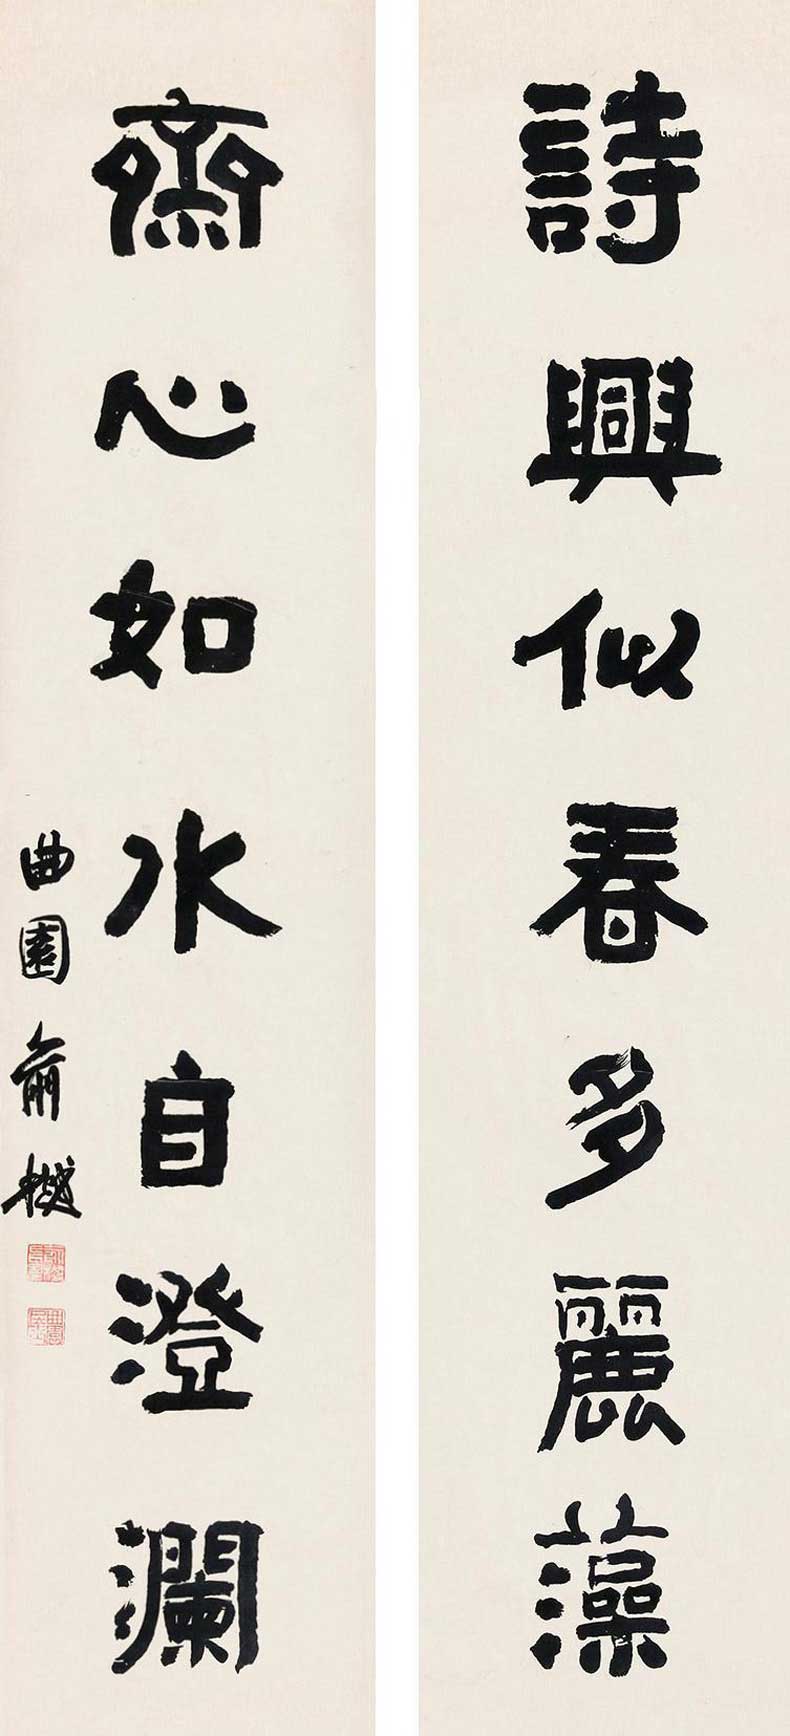 詩興似春多麗藻
齋心如水自澄瀾
曲園俞樾